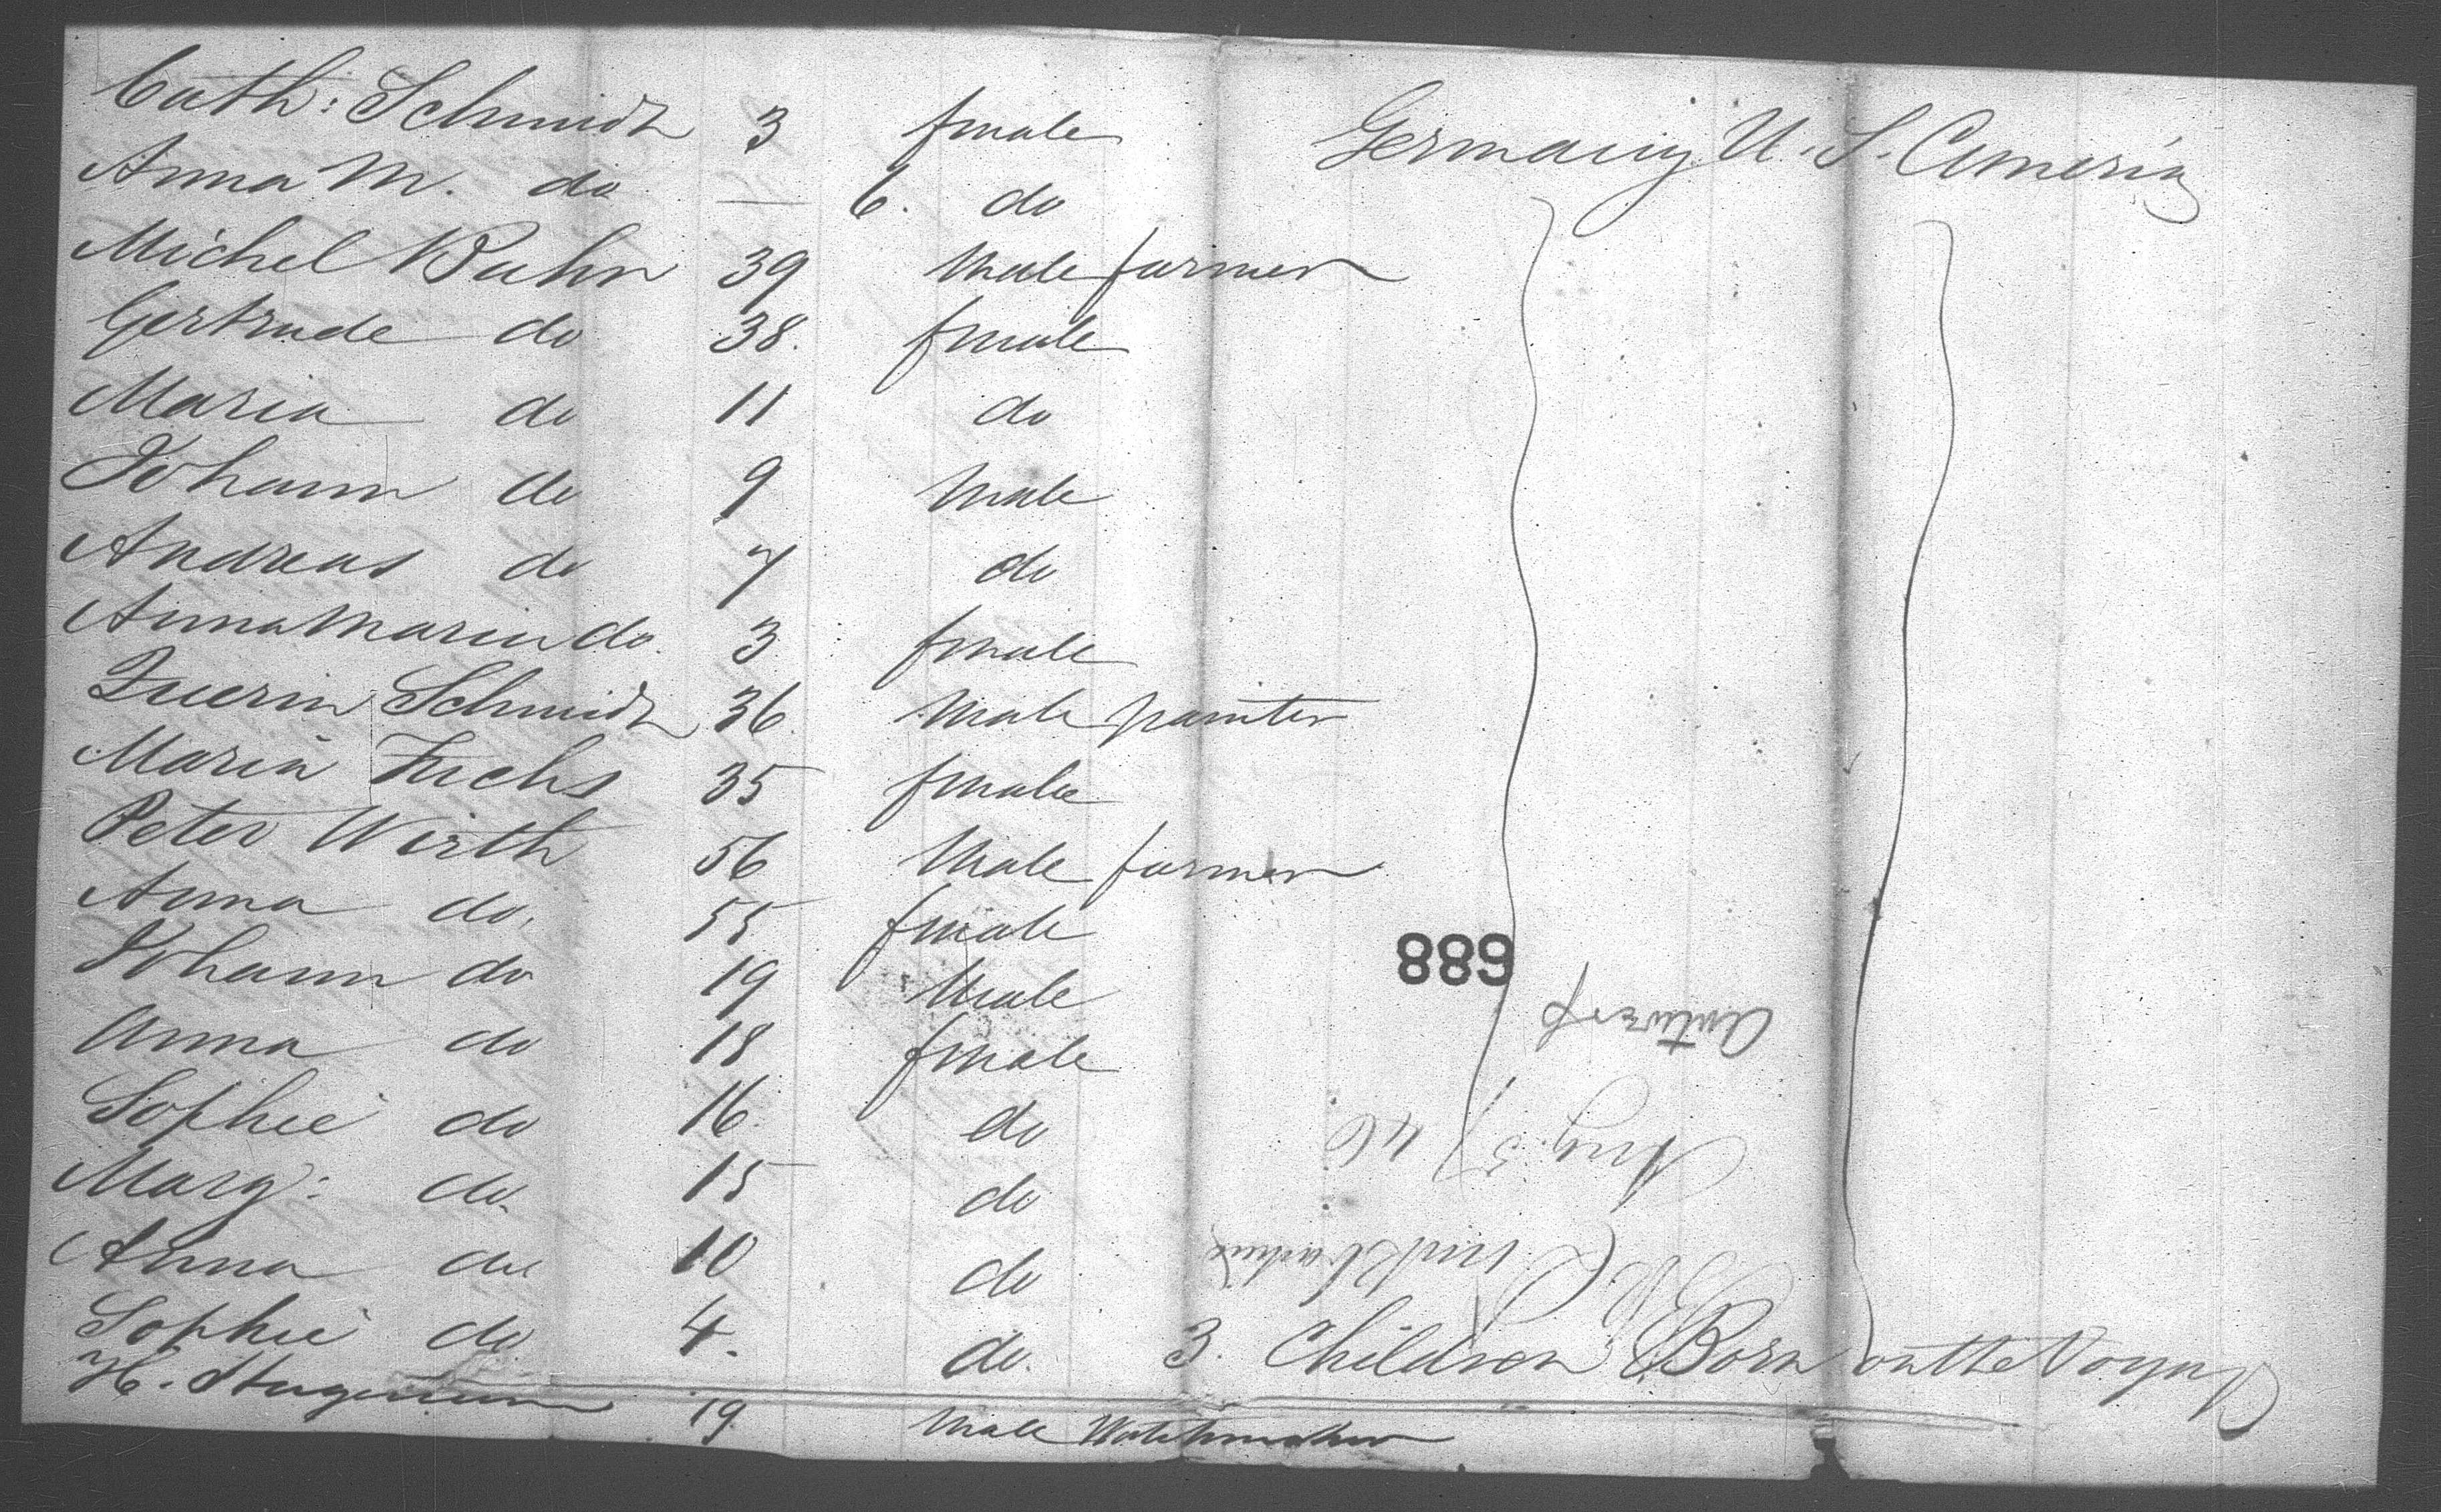 Cath: Schmidt 3 female Germany U. S. America
Anna M. do — 6. do
Michel Bahn 39 Male farmer
Gertrude do 38. female
Maria do 11 do
Johann do 9 Male
Andreas do 7 do
Anna Maria do. 3 female
Querin Schmidt 36 Male painter
Maria Fuchs 35 female
Peter Wirth 56 Male farmer
Anna do. 55 female
Johann do 19 Male
Anna do 18 female
Sophie do 16 do
Marg: do. 15 do
Anna do 10 do
Sophie do 4. do. 3. Children Born on the Voyage
H. 19. Male Watchmaker
889
Antwerp
Aug. 5/46